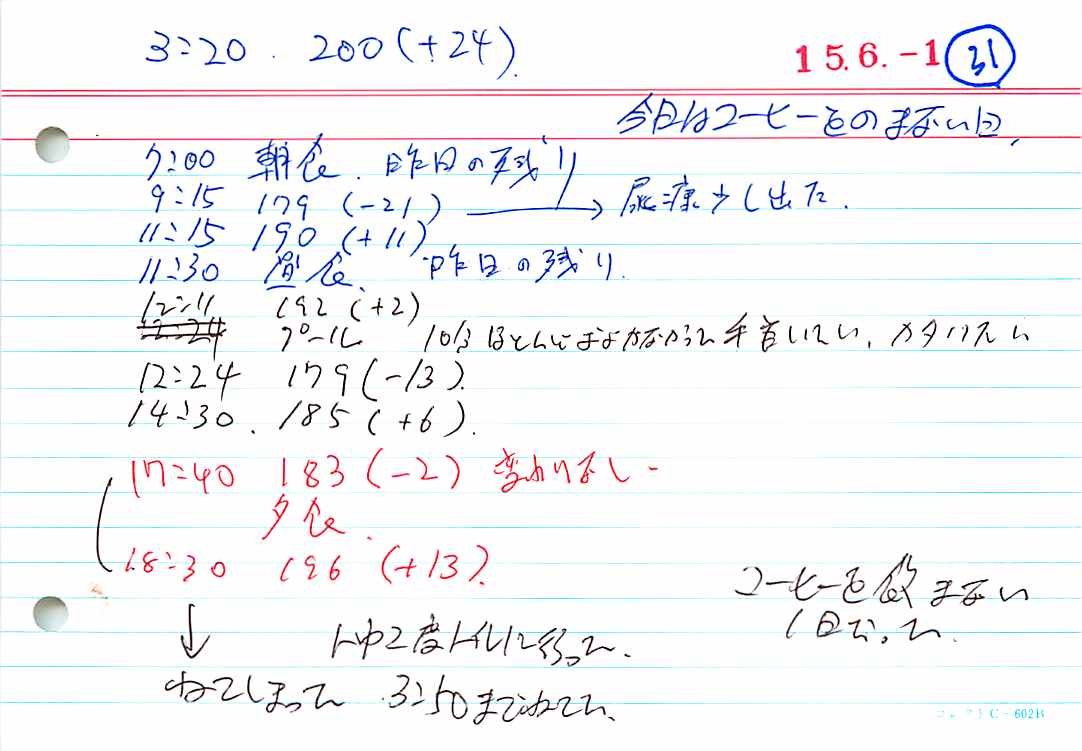 3:20. 200(+24).
15.6.-1 31
今日はコーヒーをのまない日、
7:00 朝食. 昨日の残り
9:15 179 (-21) → 尿漏少し出た.
11:15 190 (+11)
11:30 昼食. 昨日の残り.
12:11 192 (+2)
12:24
プール 10分ほとんどおよがなかった 手首いたい, カタいたい
12:24 179(-13).
14:30. 185(+6).
17:40 183(-2) 変わりなし-
夕食.
18:30 196 (+13).
コーヒーを飲まない
1日だった.
↓ 2度トイレに行った.
ねてしまった 3:50までねてた.
コレクト C-602B